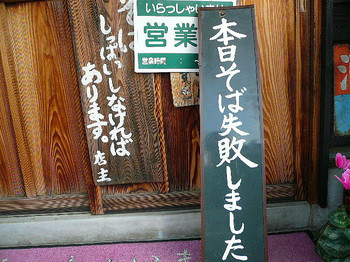 本日そば失敗しました
いらっしゃいませ
営業
営業時間
そば
しっぱいしなければ
あります。
店主